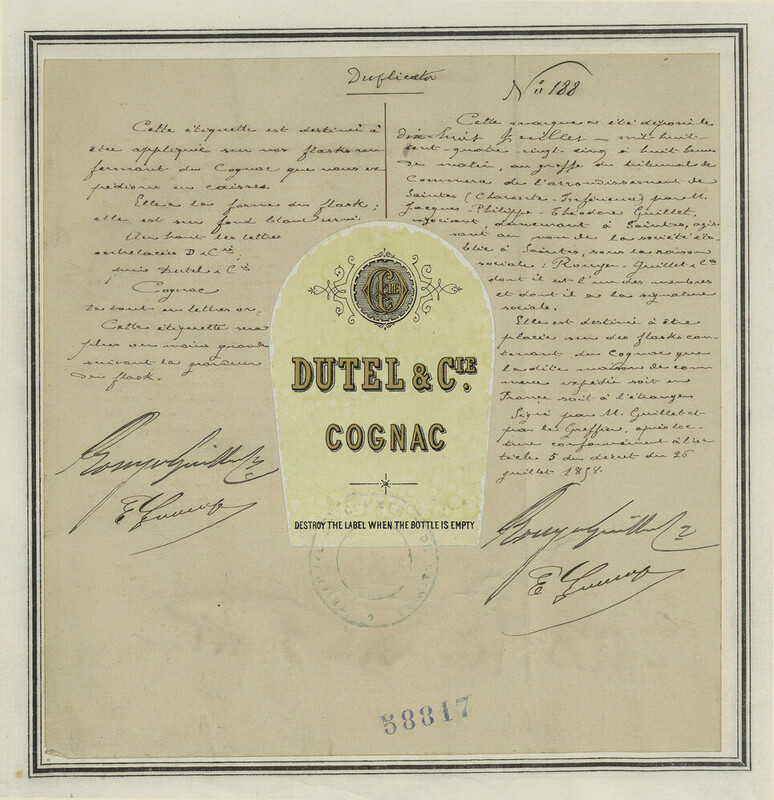 Duplicata
N° 188
Cette étiquette est destiné à
être appliqué sur nos flasks ren
fermant du Cognac que nous ex
pédions en caisses.
Elle a la forme du flask;
elle est sur fond blanc verni.
En haut les lettres
entrelacées D & Cie,
puis Dutel & Cie
Cognac
le tout en lettres or.
Cette étiquette sera
plus ou moins grande
suivant la grandeur
du flask.
Rouyer Guillet & Cie
Cette marque a été déposée le
dix-huit Juillet mil-huit-
cent-quatre-vingt-cinq à huit heures
du matin, au greffe du tribunal de
Commerce de l'arrondissement de
Saintes (Charente-Inférieure) par M.
Jacques-Philippe-Théodore Guillet,
négociant, demeurant à Saintes, agis-
sant au nom de la société éta-
blie à Saintes, sous la raison
sociale: Rouyer-Guillet & Cie
dont il est l'un des membres
et dont il a la signature
sociale.
Elle est destiné à être
placée sur des flasks con-
tenant du Cognac que
la dite maison de com-
merce expédie soit en
France soit à l'étranger.
Signé par M. Guillet et
par le Greffier, après lec-
ture conformément à l'ar-
ticle 5 du décret du 26
juillet 1858.
Rouyer Guillet & Cie
C CIE D
DUTEL & CIE.
COGNAC
DESTROY THE LABEL WHEN THE BOTTLE IS EMPTY
58817